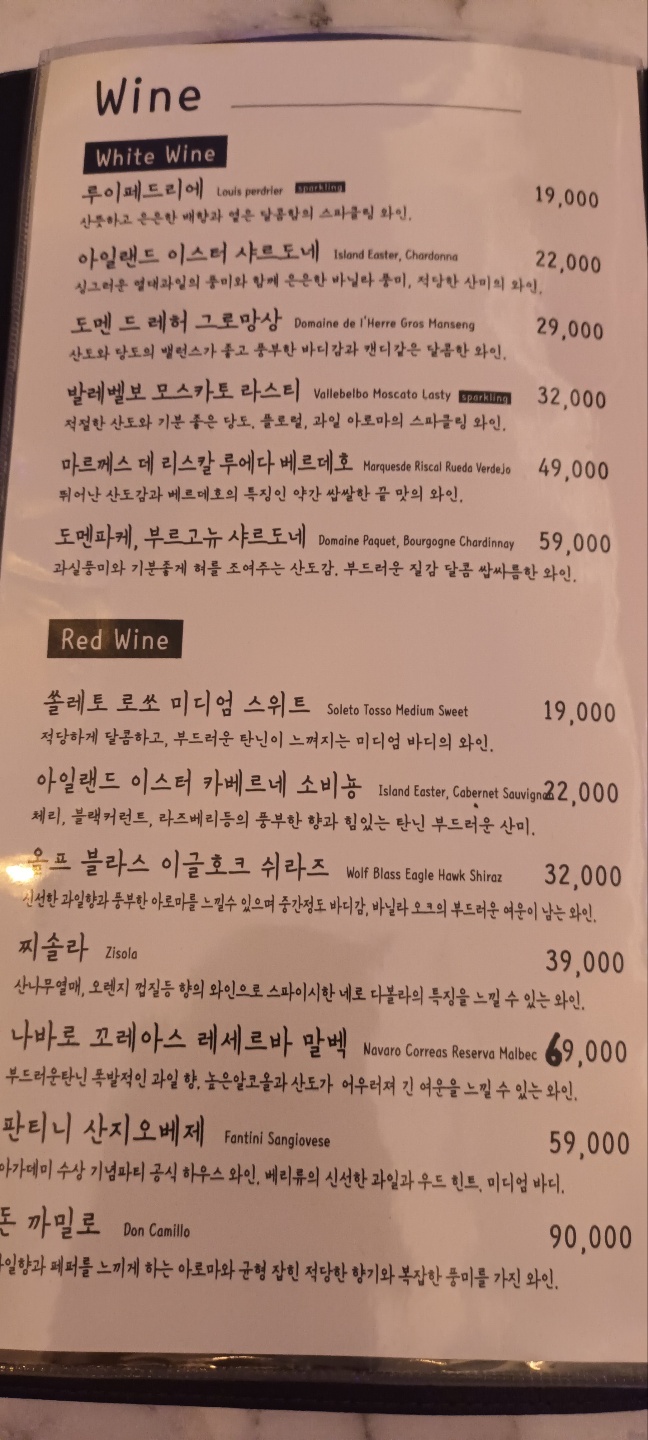 Wine
White Wine
루이페드리에 Louis perdrier sparkling 19,000
산뜻하고 은은한 배향과 옅은 달콤함의 스파클링 와인.
아일랜드 이스터 샤르도네 Island Easter, Chardonna 22,000
싱그러운 열대과일의 풍미와 함께 은은한 바닐라 풍미, 적당한 산미의 와인.
도멘 드 레허 그로망상 Domaine de l'Herre Gros Manseng 29,000
산도와 당도의 밸런스가 좋고 풍부한 바디감과 캔디같은 달콤한 와인.
발레벨보 모스카토 라스티 Vallebelbo Moscato Lasty sparkling 32,000
적절한 산도와 기분 좋은 당도, 플로럴, 과일 아로마의 스파클링 와인.
마르께스 데 리스칼 루에다 베르데호 Marquesde Riscal Rueda Verdejo 49,000
뛰어난 산도감과 베르데호의 특징인 약간 쌉쌀한 끝 맛의 와인.
도멘파케, 부르고뉴 샤르도네 Domaine Paquet, Bourgogne Chardinnay 59,000
과실풍미와 기분좋게 혀를 조여주는 산도감. 부드러운 질감 달콤 쌉싸름한 와인.
Red Wine
쏠레토 로쏘 미디엄 스위트 Soleto Tosso Medium Sweet 19,000
적당하게 달콤하고, 부드러운 탄닌이 느껴지는 미디엄 바디의 와인.
아일랜드 이스터 카베르네 소비뇽 Island Easter, Cabernet 22,000
체리, 블랙커런트, 라즈베리등의 풍부한 향과 힘있는 탄닌 부드러운 산미.
울프 블라스 이글호크 쉬라즈 Wolf Blass Eagle Hawk Shiraz 32,000
신선한 과일향과 풍부한 아로마를 느낄수 있으며 중간정도 바디감, 바닐라 오크의 부드러운 여운이 남는 와인.
찌솔라 Zisola 39,000
산나무열매, 오렌지 껍질등 향의 와인으로 스파이시한 네로 다볼라의 특징을 느낄 수 있는 와인.
나바로 꼬레아스 레세르바 말벡 Navaro Correas Reserva Malbec 69,000
부드러운탄닌 폭발적인 과일 향, 높은알코올과 산도가 어우러져 긴 여운을 느낄 수 있는 와인.
판티니 산지오베제 Fantini Sangiovese 59,000
아카데미 수상 기념파티 공식 하우스 와인. 베리류의 신선한 과일과 우드 힌트, 미디엄 바디.
돈 까밀로 Don Camillo 90,000
페퍼를 느끼게 하는 아로마와 균형 잡힌 적당한 향기와 복잡한 풍미를 가진 와인.